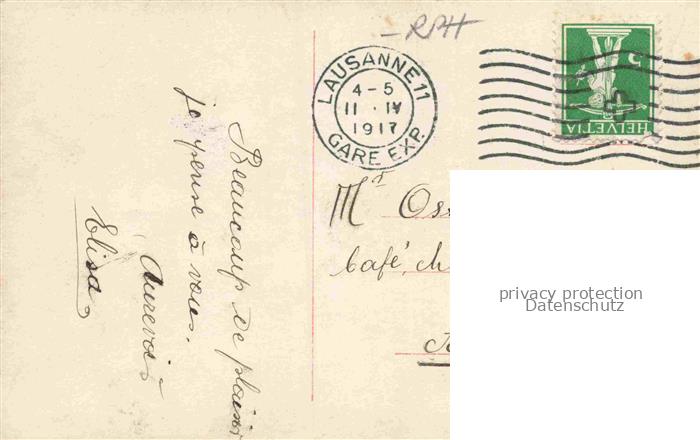 RPH
LAUSANNE 11
4-5
11 · IV
1917
GARE EXP.
HELVETIA
5
Beaucoup de plaisir
je pense à vous.
Aurevoir
Elisa
Mr Oss
Café, ch
privacy protection
Datenschutz